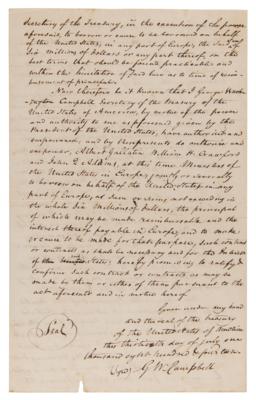 Secretary of the Treasury, in the execution of the power
aforesaid, to borrow or cause to be borrowed on behalf
of the United States, in any part of Europe, the sum of
Six Millions of dollars or any part thereof, on the
best terms that should be found practicable and
within the limitation of said law as to time of reim-
bursement if practicable
Now therefore be it known that I George Wash-
ington Campbell Secretary of the Treasury of the
United States of America, by virtue of the power
and authority to me as aforesaid given by the
President of the United States, have authorized and
empowered, and by these presents do authorize and
empower, Albert Gallatin William H. Crawford
and John Q. Adams, at this time Ministers of
the United States in Europe, jointly or severally
to borrow on behalf of the United States in any
part of Europe, a Sum or sums not exceeding in
the whole Six Millions of dollars, the principal
of which may be made reimbursable and the
interest thereof payable in Europe; and to make
or cause to be made for that purpose, such contract
or contracts as shall be necessary and for the Interest
of the States; hereby promising to ratify &
confirm such contract or contracts as may be
made by them or either of them pursuant to the
act aforesaid and in virtue hereof
Given under my hand
and the seal of the treasury
of the United States of America
this thirtieth day of July one
thousand eight hundred & fourteen
Seal
G W Campbell